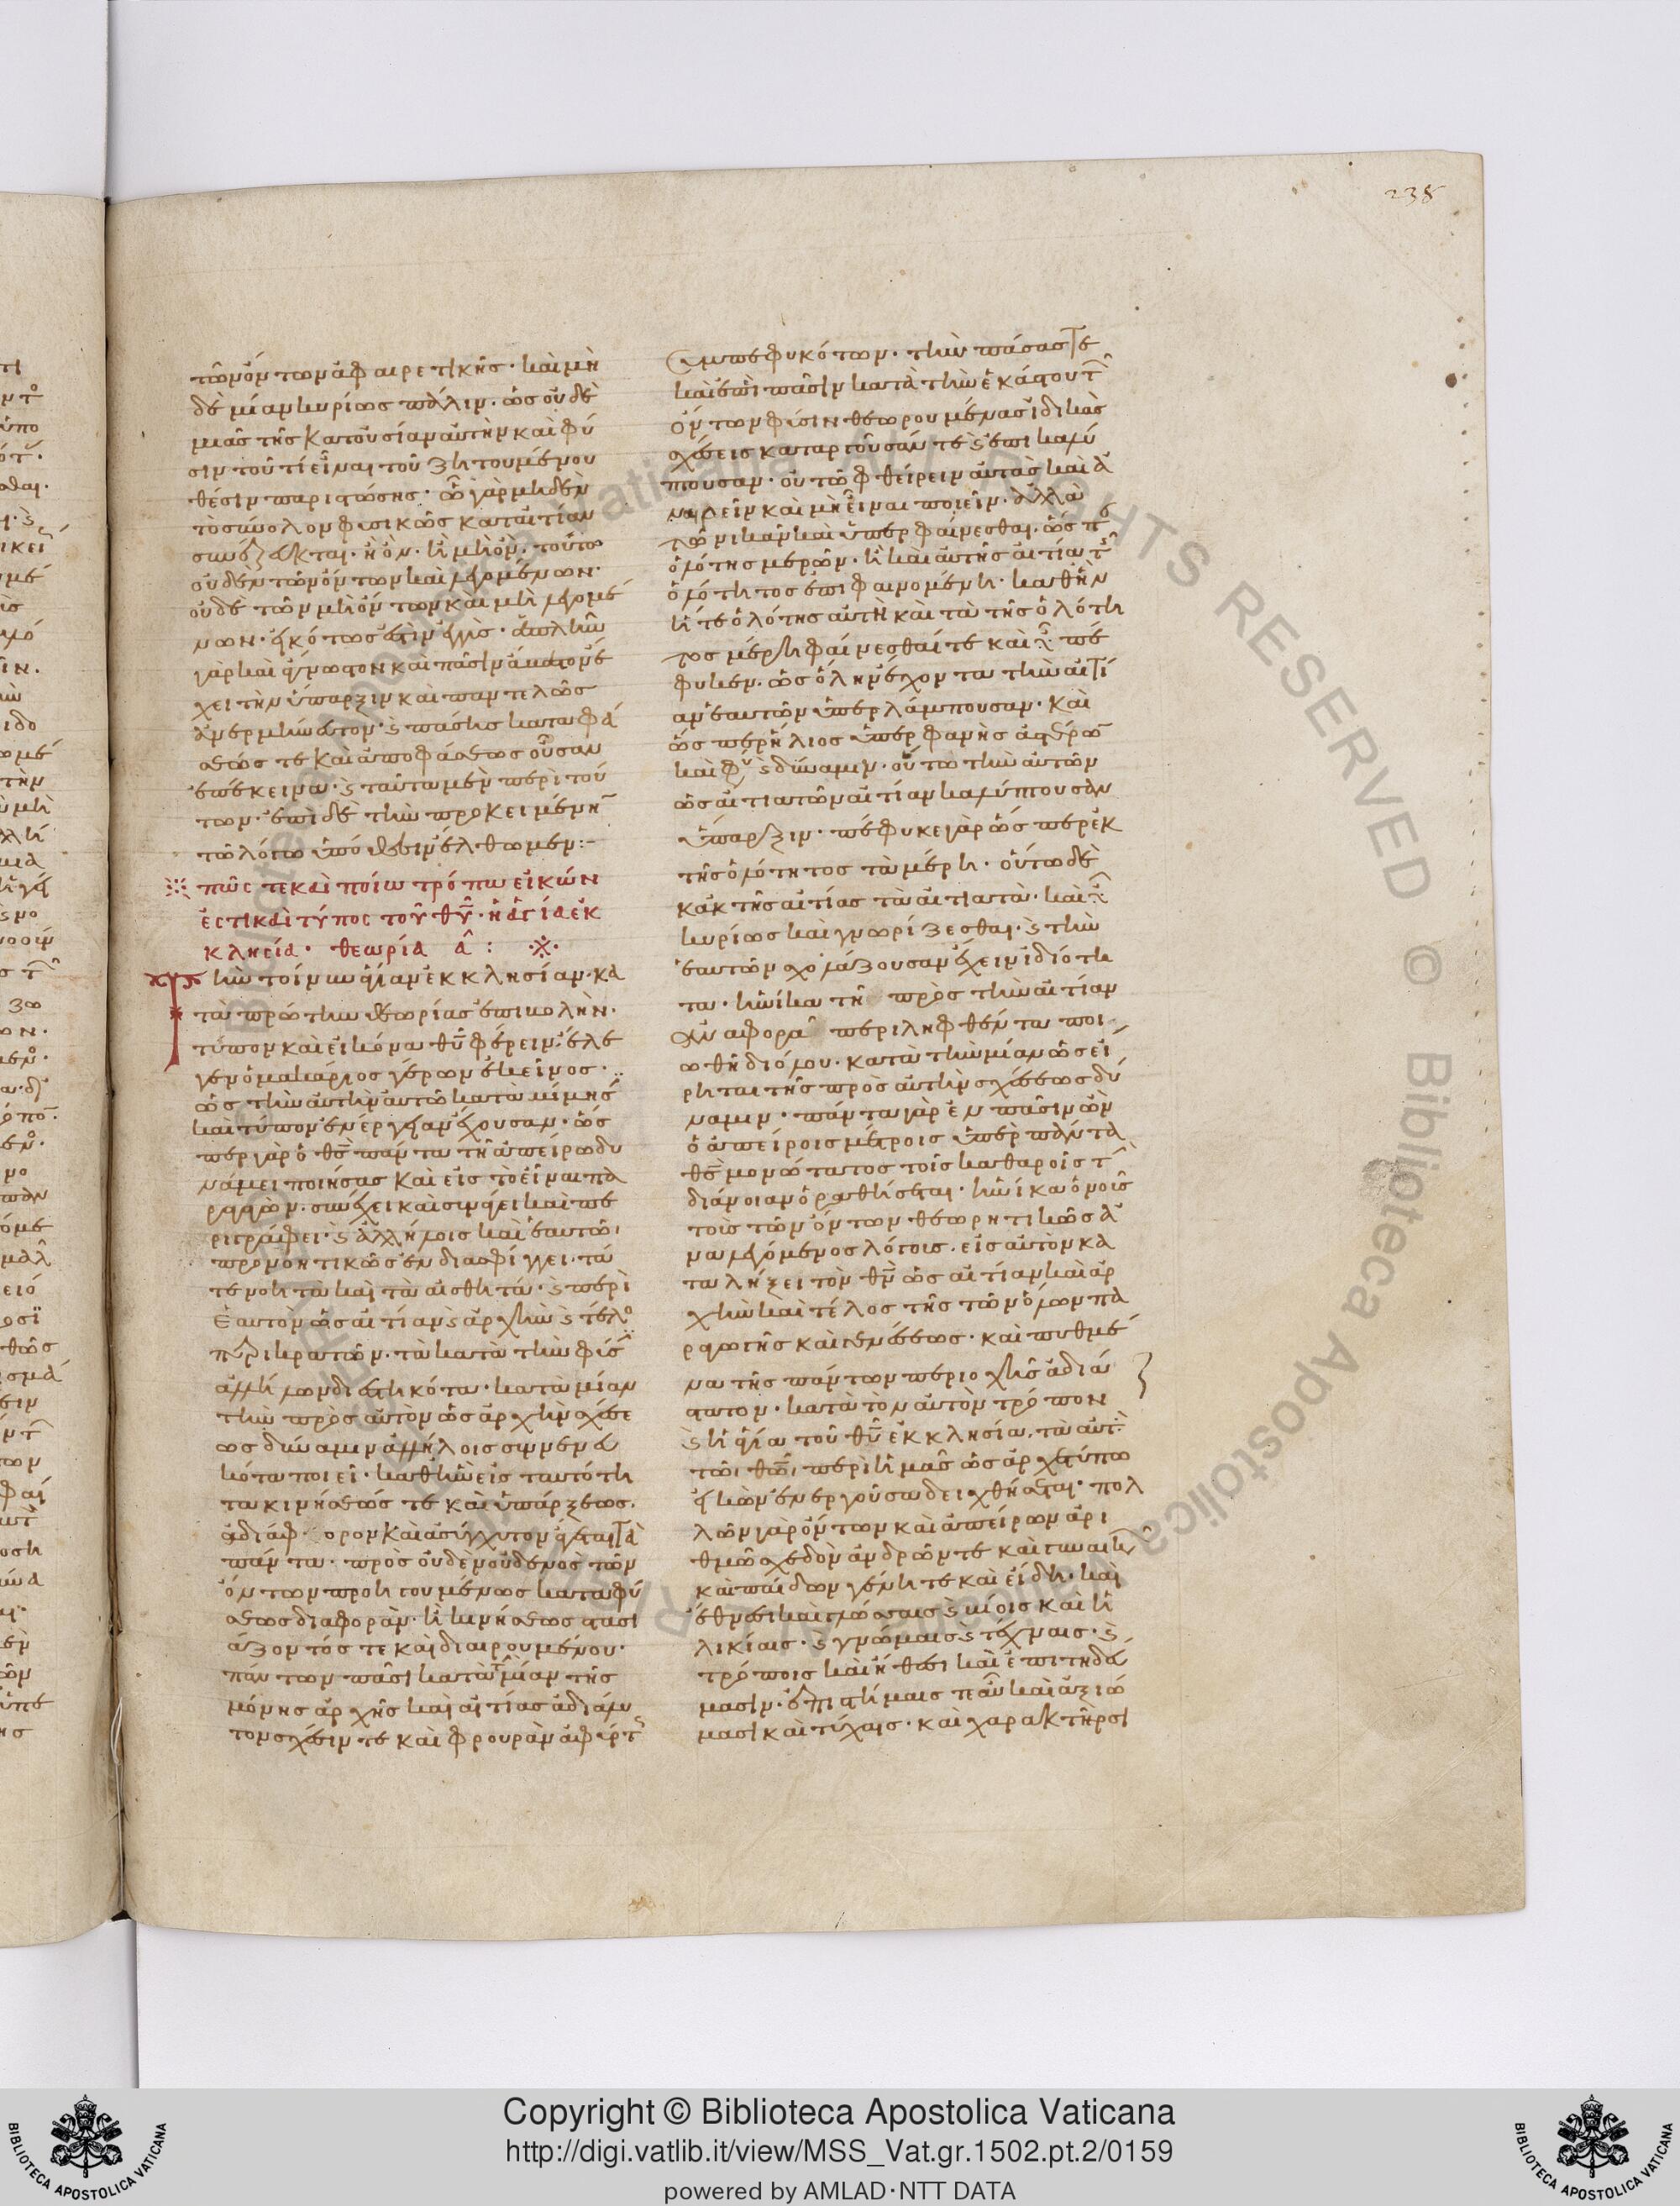 238
τῶν ὄντων ἀφαιρετικῆς· καὶ μη
δὲ μίαν κυρίως πάλιν· ὡς οὐδὲ
μιᾶς τῆς κατ' οὐσίαν αὐτὴν καὶ φύ
σιν τοῦ τί εἶναι τοῦ ζητουμένου
θέσιν παριστώσης· ᾧ γὰρ μηδὲν
τοσύνολον φυσικῶς κατ' αἰτίαν
συνέζευκται· ἢ ὂν· ἢ μὴ ὂν· τούτω
οὐδὲν τῶν ὄντων καὶ λεγομένων·
οὐδὲ τῶν μὴ ὄντων καὶ μὴ λεγομέ
νων· εἰκότως ἐστὶν ἐγγὺς· ἁπλῆν
γὰρ καὶ ἄγνωστον καὶ πᾶσιν ἄβατον ἔ
χει τὴν ὕπαρξιν καὶ παντελῶς
ἀνερμήνευτον· ϗ πάσης καταφά
σεώς τε καὶ ἀποφάσεως οὖσαν
ἐπέκεινα· ϗ ταῦτα μὲν περὶ τού
των· ἐπὶ δὲ τὴν προκειμένην
τῶ λόγω ὑπόθεσιν ἔλθωμεν:–
πῶς τε καὶ ποίω τρόπω εἰκών
ἐστι καὶ τύπος τοῦ θῦ· ἡ ἁγία ἐκ
κλησία· θεωρία α :
Τὴν τοίνυν ἁγίαν ἐκκλησίαν· κα
τὰ πρώτην θεωρίας ἐπιβολὴν·
τύπον καὶ εἰκόνα θῦ φέρειν· ἔλε
γεν ὁ μακάριος γέρων ἐκεῖνος·
ὡς τὴν αὐτὴν αὐτῶ κατὰ μίμησιν
καὶ τύπον ἐνέργειαν ἔχουσαν· ὥς
περ γὰρ ὁ θς πάντα τῆ ἀπείρω δυ
νάμει ποιήσας καὶ εἰς τὸ εἶναι πα
ραγαγών· συνέχει καὶ συνάγει καὶ πε
ριγράφει· ϗ ἀλλήλοις καὶ ἑαυτῶ,
προνοητικῶς ἐνδιασφίγγει· τά
τε νοητὰ καὶ τὰ αἰσθητά· ϗ περὶ
ἑαυτὸν ὡς αἰτίαν ϗ ἀρχὴν ϗ τέλος
περικρατῶν· τὰ κατὰ τὴν φύσιν
ἀλλήλων διεστηκότα· κατὰ μίαν
τὴν πρὸς αὐτὸν ὡς ἀρχὴν σχέσε
ως δύναμιν ἀλλήλοις συννενευ
κότα ποιεῖ· καθ' ἣν εἰς ταυτότη
τα κινήσεώς τε καὶ ὑπάρξεως·
ἀδιάφορον καὶ ἀσύγχυτον ἄγεται τὰ
πάντα· πρὸς οὐδὲν οὐδενὸς τῶν
ὄντων προηγουμένως κατὰ φύ
σεως διαφορὰν· ἢ κινήσεως στασι
άζοντός τε καὶ διαιρουμένου·
πάντων πᾶσι κατὰ τὴν μίαν τῆς
μόνης ἀρχῆς καὶ αἰτίας ἀδιάλυ
τον σχέσιν τε καὶ φρουρὰν ἀφύρτως
ἐμπεφυκότων· τὴν πάσας τε
καὶ ἐπὶ πᾶσιν κατὰ τὴν ἑκάστου τῶν
ὄντων φύσιν θεωρουμένας ἰδικὰς
σχέσεις καταργοῦσάν τε ϗ ἐπικαλύ
πτουσαν· οὐ τῶ φθείρειν αὐτὰς καὶ ἀ
ναιρεῖν καὶ μὴ εἶναι ποιεῖν· ἀλλὰ
τῶ νικᾶν καὶ ὑπερφαίνεσθαι· ὥσπερ
ὁλότης μερῶν· ἢ καὶ αὐτῆς αἰτία τῆς
ὁλότητος ἐπιφαινομένη· καθ' ἣν
ἥ τε ὁλότης αὐτὴ καὶ τὰ τῆς ὁλότη
τος μέρη φαίνεσθαί τε καὶ εἶναι πέ
φυκεν· ὡς ὅλην ἔχοντα τὴν αἰτί
αν ἑαυτῶν ὑπερλάμπουσαν· καὶ
ὥσπερ ἥλιος ὑπερφανῆς ἀστέρων
καὶ φύσιν ϗ δύναμιν· οὕτω τὴν αὐτῶν
ὡς αἰτιατῶν αἰτίαν καλύπτουσαν
ὕπαρξιν· πέφυκε γὰρ ὥσπερ ἐκ
τῆς ὁλότητος τὰ μέρη· οὕτω δὲ
κἀκ τῆς αἰτίας τὰ αἰτιατὰ· καὶ εἶναι
κυρίως καὶ γνωρίζεσθαι· ϗ τὴν
ἑαυτῶν σχολάζουσαν ἔχειν ἰδιότη
τα· ἡνίκα τῆ πρὸς τὴν αἰτίαν
ἀναφορᾶ περιληφθέντα ποι
ωθῆ διόλου· κατὰ τὴν μίαν ὡς εἴ
ρηται τῆς πρὸς αὐτὴν σχέσεως δύ
ναμιν· πάντα γὰρ ἐν πᾶσιν ὢν
ὁ ἀπείροις μέτροις ὑπὲρ πάντα
θς μονώτατος τοῖς καθαροῖς τὴν
διάνοιαν ὁραθήσεται· ἡνίκα ὁ νοῦς
τοὺς τῶν ὄντων θεωρητικῶς ἀ
ναλεγόμενος λόγους· εἰς αὐτὸν κα
ταλήξει τὸν θν ὡς αἰτίαν καὶ ἀρ
χὴν καὶ τέλος τῆς τῶν ὅλων πα
ραγωγῆς καὶ γενέσεως· καὶ πυθμέ
να τῆς πάντων περιοχῆς ἀδιάσ
τατον· κατὰ τὸν αὐτὸν τρόπον
ϗ ἡ ἁγία τοῦ θῦ ἐκκλησία, τὰ αὐτὰ
τῶ, θῶ, περὶ ἡμᾶς ὡς ἀρχετύπω
εἰκὼν ἐνεργοῦσα δειχθήσεται· πολ
λῶν γὰρ ὄντων καὶ ἀπείρων ἀρι
θμῶ σχεδὸν ἀνδρῶν τε καὶ γυναικῶν
καὶ παίδων γένη τε καὶ εἴδη· καὶ
ἔθνεσι καὶ γλώσσαις ϗ βίοις καὶ ἡ
λικίαις· ϗ γνώμαις ϗ τέχναις· ϗ
τρόποις καὶ ἤθεσι καὶ ἐπιτηδεύ
μασιν· ἐπιστήμαις τε αὖ καὶ ἀξιώ
μασι καὶ τύχαις· καὶ χαρακτῆρσι
Copyright © Biblioteca Apostolica Vaticana
http://digi.vatlib.it/view/MSS_Vat.gr.1502.pt.2/0159
powered by AMLAD·NTT DATA
BIBLIOTECA APOSTOLICA VATICANA
BIBLIOTECA APOSTOLICA VATICANA